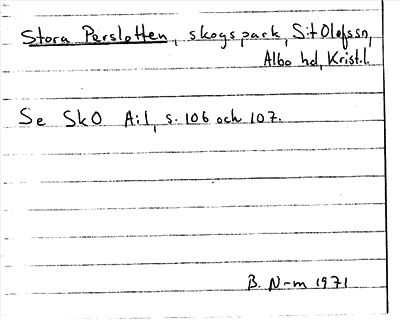 Stora Perslotten, skogspark, S:t Olofssn,
Albo hd, Krist.l.
Se SkO A:1, s. 106 och 107.
B. N-m 1971